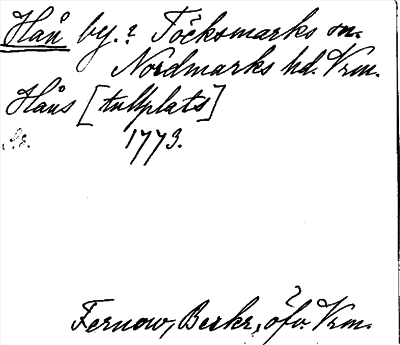 Hån by. i Töcksmarks sn.
Nordmarks hd. Vrm.
Håns [tullplats]
1773.
Fernow, Beskr. öfv. Vrm.